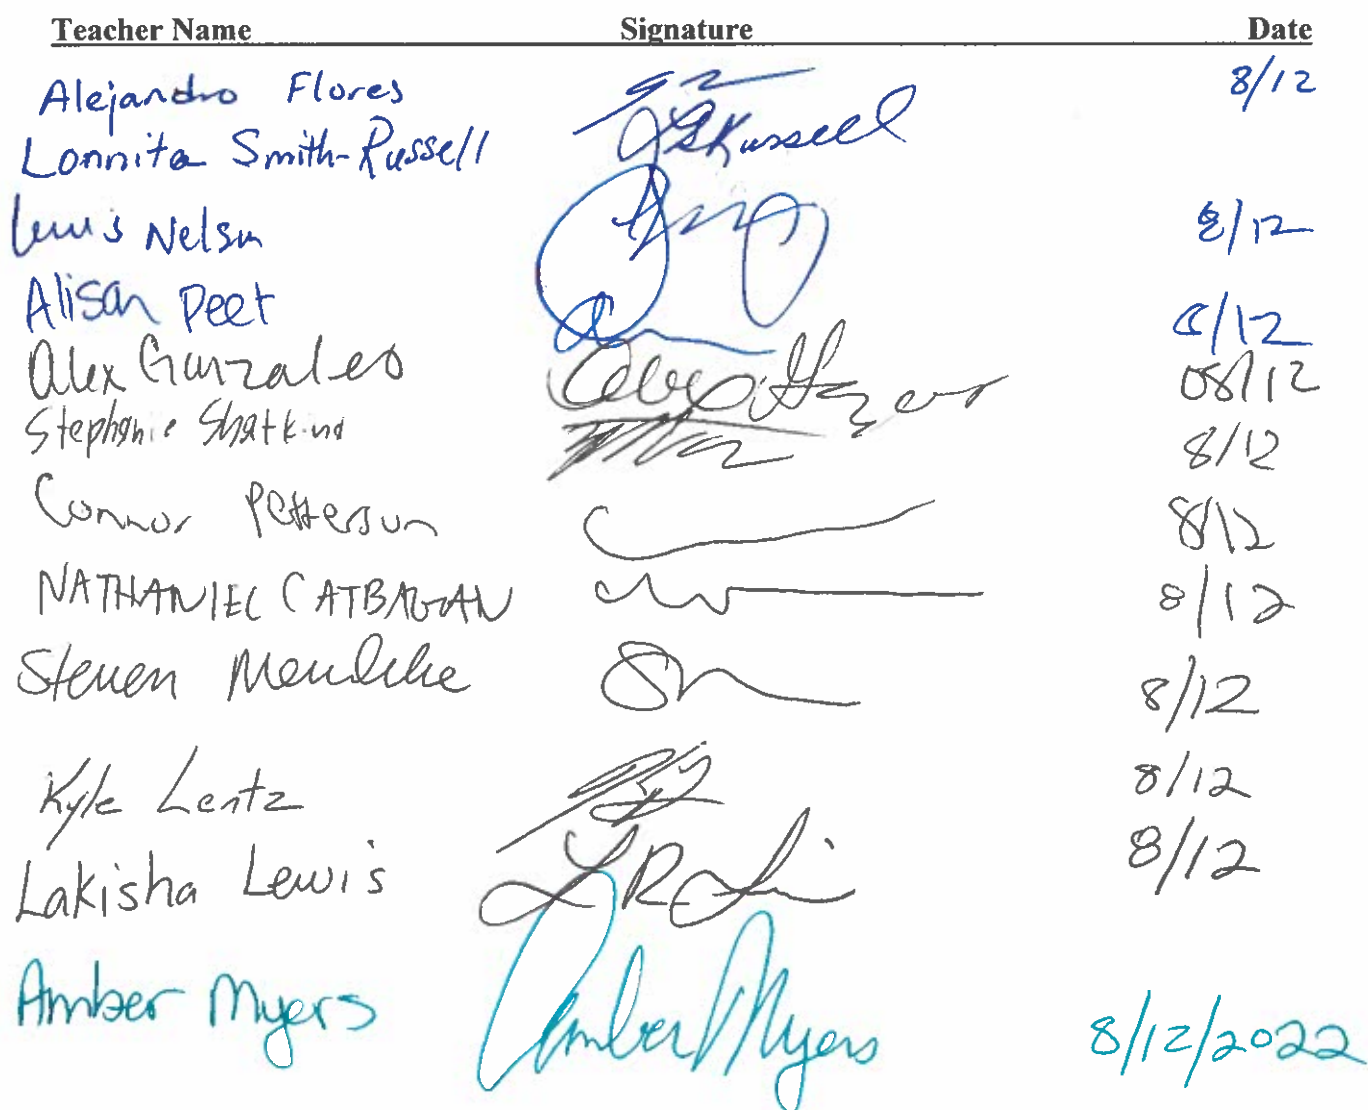 Teacher Name Signature Date
Alejandro Flores 8/12
Lonnita Smith-Russell LSRussell
Lewis Nelson 8/12
Alison Peet 8/12
Alex Gonzales Alex 08/12
Stephanie Shatkins 8/12
Connor Petterson 8/12
NATHANIEL CATBAGAN 8/12
Steven 8/12
Kyle Lentz 8/12
Lakisha Lewis 8/12
Amber Myers Amber Myers 8/12/2022